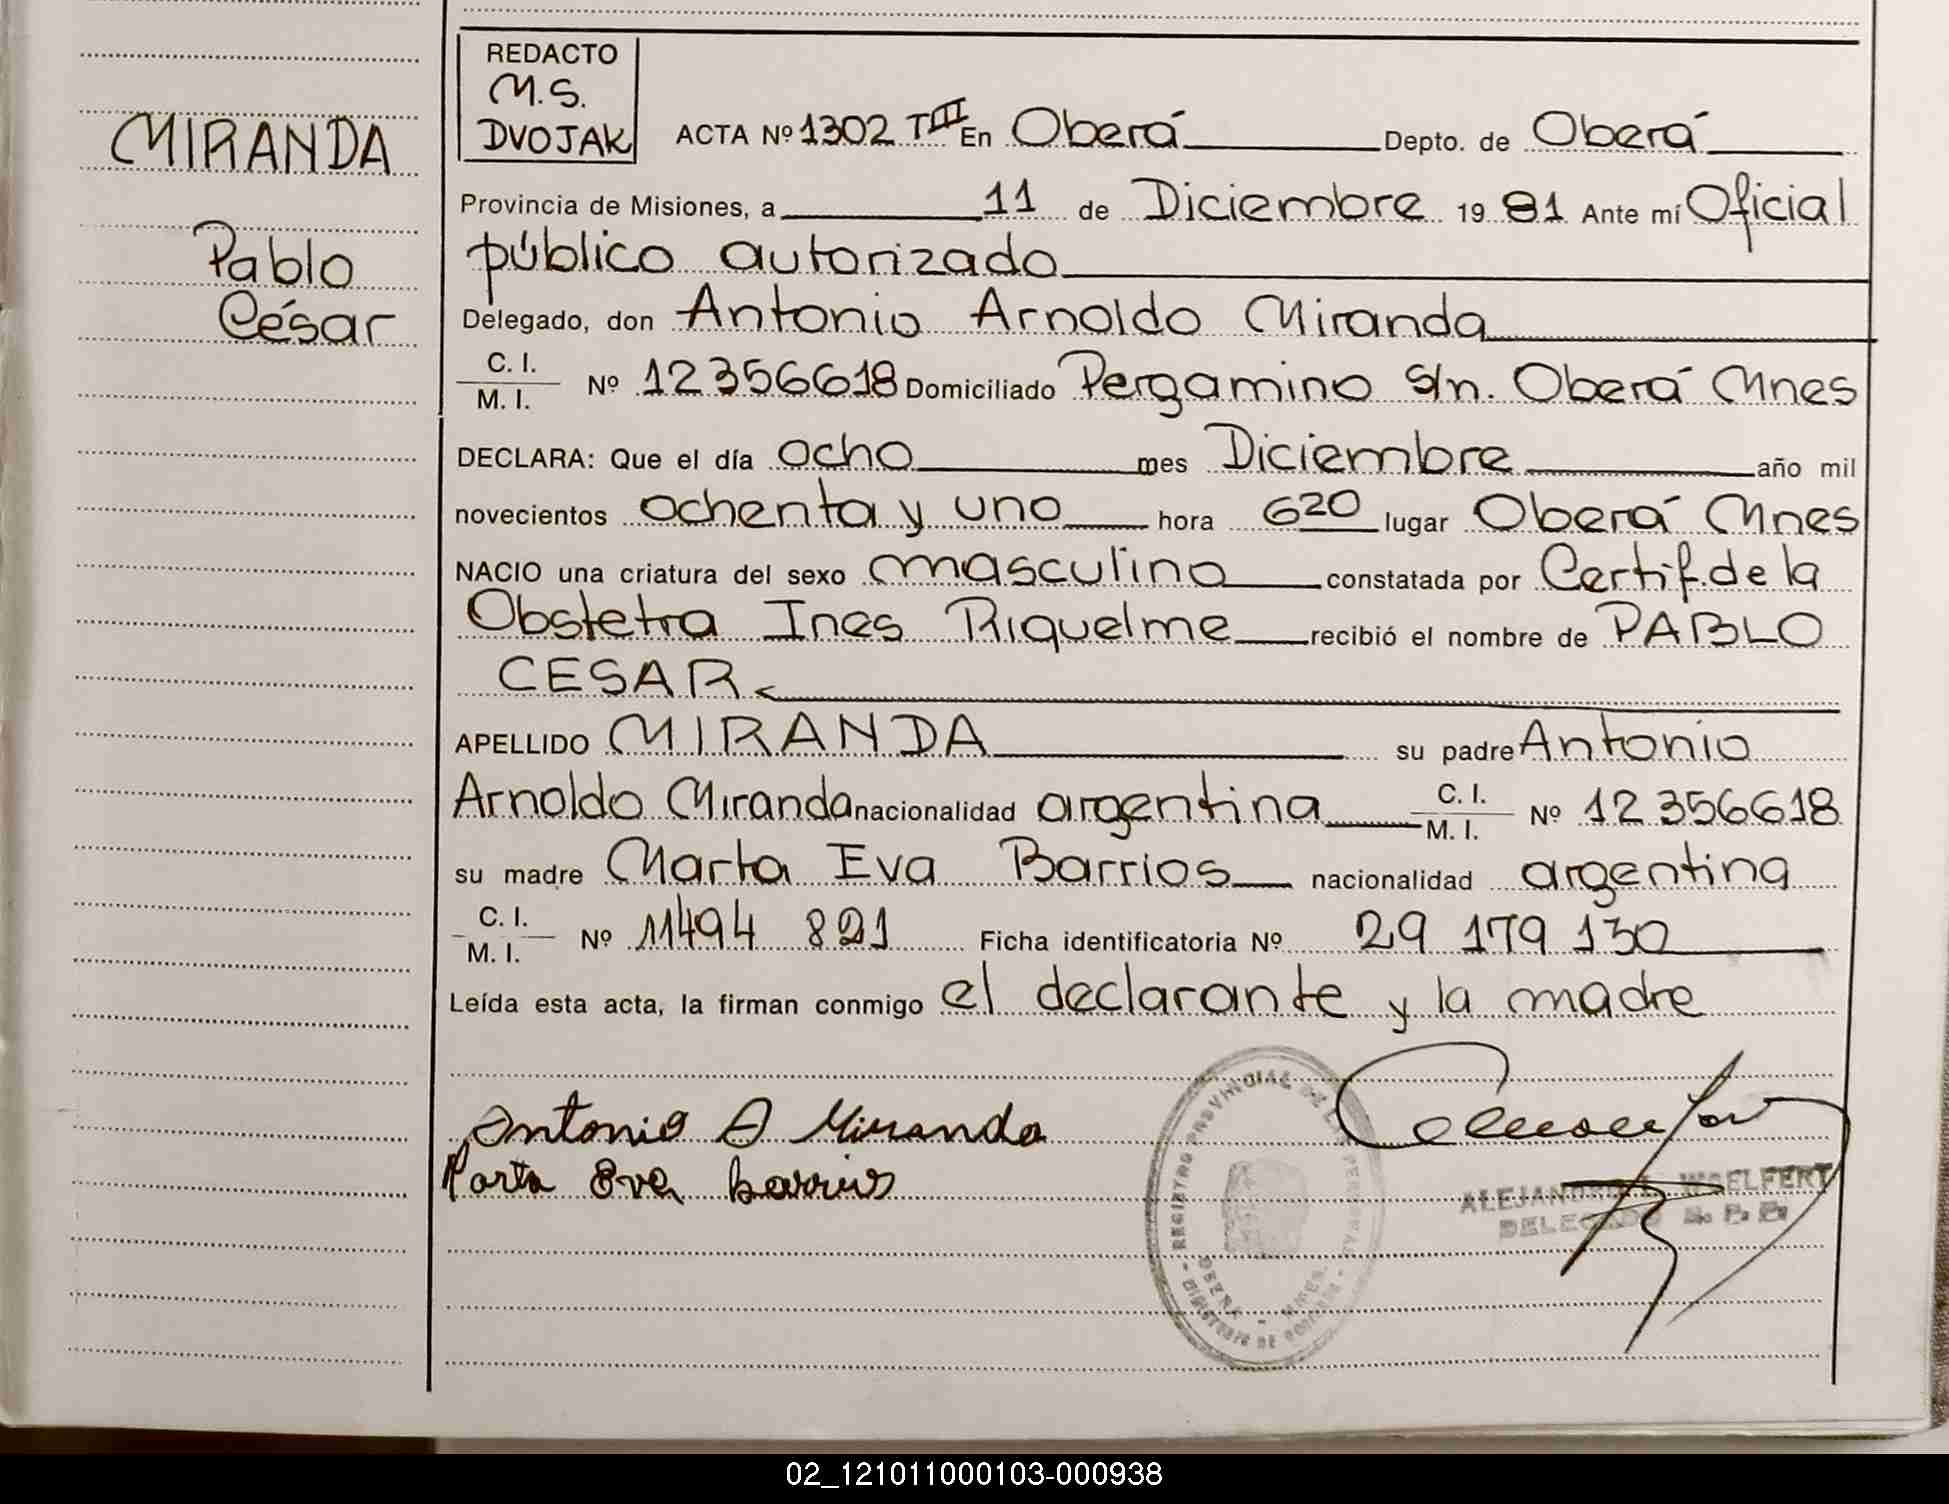 MIRANDA
Pablo
César
REDACTO
M.S.
DVOJAK
ACTA Nº 1302 TIII En Oberá Depto. de Oberá
Provincia de Misiones, a 11 de Diciembre 19 81 Ante mí Oficial
público autorizado
Delegado, don Antonio Arnoldo Miranda
C. I.
M. I. Nº 12356618 Domiciliado Pergamino s/n. Oberá Mnes
DECLARA: Que el día ocho mes Diciembre año mil
novecientos ochenta y uno hora 620 lugar Oberá Mnes
NACIO una criatura del sexo masculino constatada por Certif. de la
Obstetra Ines Riquelme recibió el nombre de PABLO
CESAR
APELLIDO MIRANDA su padre Antonio
Arnoldo Miranda nacionalidad argentina C. I. M. I. Nº 12 356618
su madre Marta Eva Barrios nacionalidad argentina
C. I.
M. I. Nº 11494 821 Ficha identificatoria Nº 29 179 130
Leída esta acta, la firman conmigo el declarante y la madre
Antonio A Miranda
Marta Eva Barrios
REGISTRO PROVINCIAL DE LAS PERSONAS
OBERA - MNES.
ALEJANDRO WOELFERT
DELEGADO
02_121011000103-000938